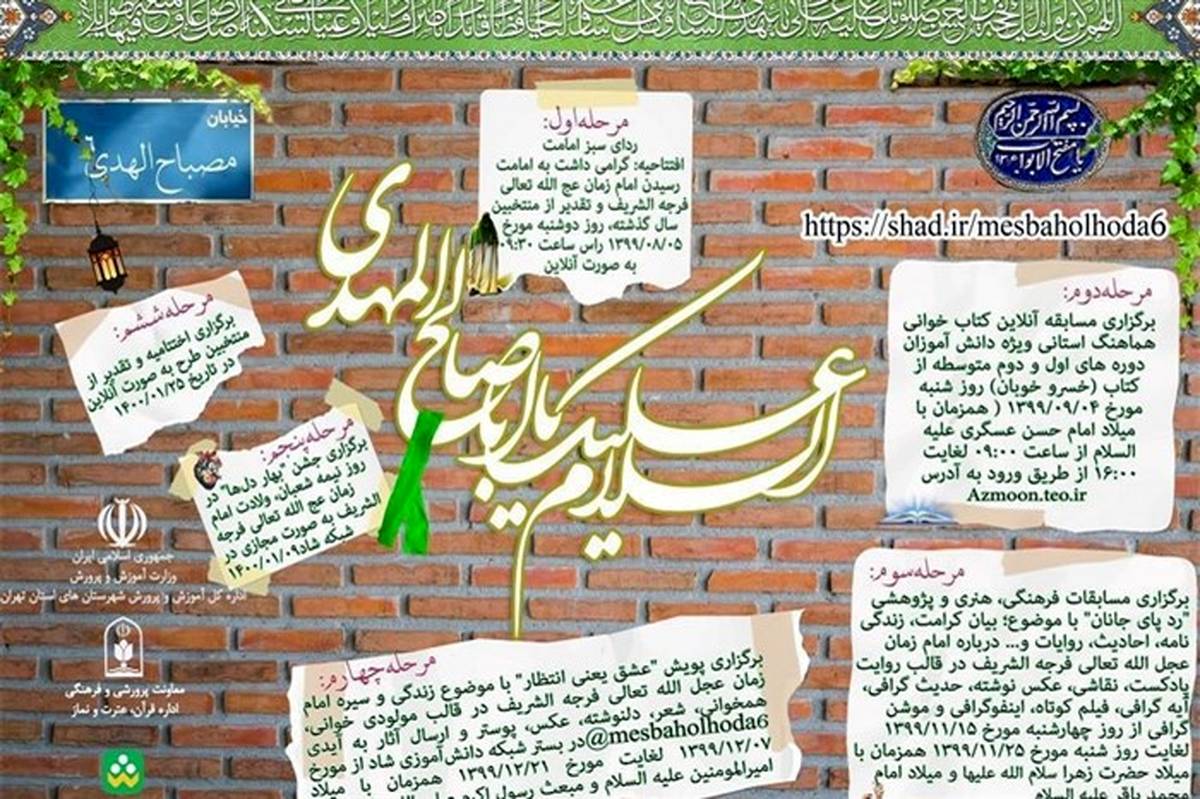 خیابان
مصباح الهدی ۶
بسم الله الرحمن الرحیم
یا مفتح الابواب
https://shad.ir/mesbaholhoda6
السلام علیک یا اباصالح المهدی
مرحله اول:
ردای سبز امامت
افتتاحیه: گرامی داشت به امامت
رسیدن امام زمان عج الله تعالی
فرجه الشریف و تقدیر از منتخبین
سال گذشته، روز دوشنبه مورخ
۱۳۹۹/۰۸/۰۵ راس ساعت ۰۹:۳۰
به صورت آنلاین
مرحله دوم:
برگزاری مسابقه آنلاین کتاب خوانی
هماهنگ استانی ویژه دانش آموزان
دوره های اول و دوم متوسطه از
کتاب (خسرو خوبان) روز شنبه
مورخ ۱۳۹۹/۰۹/۰۴ ( همزمان با
میلاد امام حسن عسگری علیه
السلام از ساعت ۰۹:۰۰ لغایت
۱۶:۰۰ از طریق ورود به آدرس
Azmoon.teo.ir
مرحله سوم:
برگزاری مسابقات فرهنگی، هنری و پژوهشی
"رد پای جانان" با موضوع؛ بیان کرامت، زندگی
نامه، احادیث، روایات و... درباره امام زمان
عجل الله تعالی فرجه الشریف در قالب روایت
پادکست، نقاشی، عکس نوشته، حدیث گرافی،
آیه گرافی، فیلم کوتاه، اینفوگرافی و موشن
گرافی از روز چهارشنبه مورخ ۱۳۹۹/۱۱/۱۵
لغایت روز شنبه مورخ ۱۳۹۹/۱۱/۲۵ همزمان با
میلاد حضرت زهرا سلام الله علیها و میلاد امام
محمد باقر علیه السلام
مرحله چهارم:
برگزاری پویش "عشق یعنی انتظار" با موضوع زندگی و سیره امام
زمان عجل الله تعالی فرجه الشریف در قالب مولودی خوانی،
همخوانی، شعر، دلنوشته، عکس، پوستر و ارسال آثار به آیدی
@mesbaholhoda6 در بستر شبکه دانش‌آموزی شاد از مورخ
۱۳۹۹/۱۲/۰۷ لغایت مورخ ۱۳۹۹/۱۲/۲۱ همزمان با میلاد
امیرالمومنین علیه السلام و مبعث رسول اکرم
مرحله پنجم:
برگزاری جشن "بهار دل‌ها" در
روز نیمه شعبان، ولادت امام
زمان عج الله تعالی فرجه
الشریف به صورت مجازی در
شبکه شاد ۱۴۰۰/۰۱/۰۹
مرحله ششم:
برگزاری اختتامیه و تقدیر از
منتخبین طرح به صورت آنلاین
در تاریخ ۱۴۰۰/۰۱/۲۵
جمهوری اسلامی ایران
وزارت آموزش و پرورش
اداره کل آموزش و پرورش شهرستان های استان تهران
معاونت پرورشی و فرهنگی
اداره قرآن، عترت و نماز